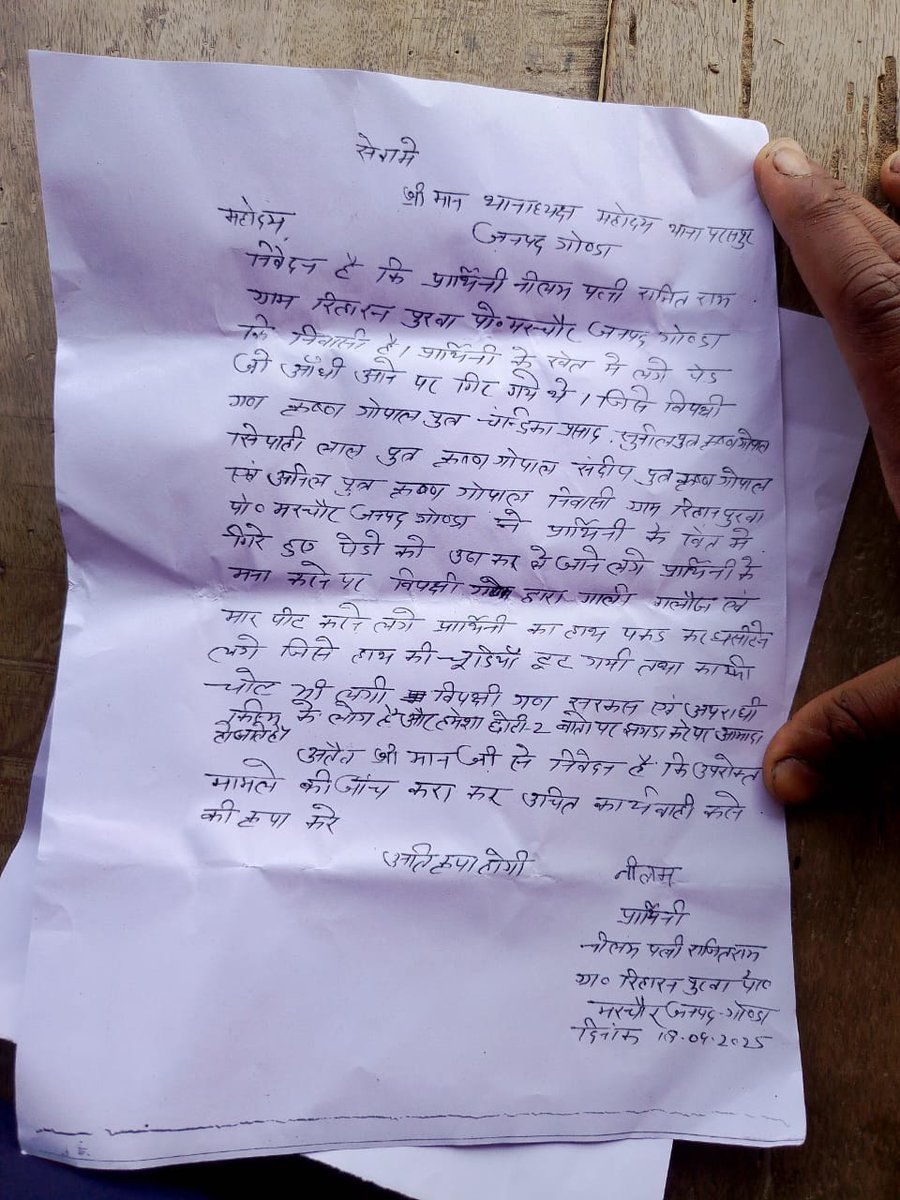 सेवामे
श्री मान थानाध्यक्ष महोदय थाना परसपुर
महोदय जनपद गोण्डा
निवेदन है कि प्रार्थिनी नीलम पत्नी राजित राम
ग्राम रिहारन पुरवा पो० मरचौर जनपद गोण्डा
कि निवासी है। प्रार्थिनी के खेत मे लगे पेड
जो आँधी आने पर गिर गये थे। जिसे विपक्षी
गण कृष्ण गोपाल पुत्र चन्द्रिका प्रसाद, सुनील पुत्र कृष्ण गोपाल
सिपाही लाल पुत्र कृष्ण गोपाल संदीप पुत्र कृष्ण गोपाल
एवं अनिल पुत्र कृष्ण गोपाल निवासी ग्राम रिहारन पुरवा
पो० मरचौर जनपद गोण्डा ने प्रार्थिनी के खेत मे
गिरे हुए पेडो को उठा कर ले जाने लगे प्रार्थिनी के
मना करने पर विपक्षी गण द्वारा गाली गलौज एवं
मार पीट करने लगे प्रार्थिनी का हाथ पकड कर घसीटने
लगे जिसे हाथ की चूडियाँ टूट गयी तथा काफी
चोट भी लगी विपक्षी गण सरकस एवं अपराधी
किस्म के लोग है और हमेशा छोटी-2 बातो पर झगडा करने पर आमादा
हो जाते है।
अतैव श्री मान जी से निवेदन है कि उपरोक्त
मामले की जांच करा कर उचित कार्यवाही करने
की कृपा करे
अति कृपा होगी
नीलम
प्रार्थिनी
नीलम पत्नी राजितराम
ग्रा० रिहारन पुरवा पो०
मरचौर जनपद-गोण्डा
दिनांक 18.04.2025